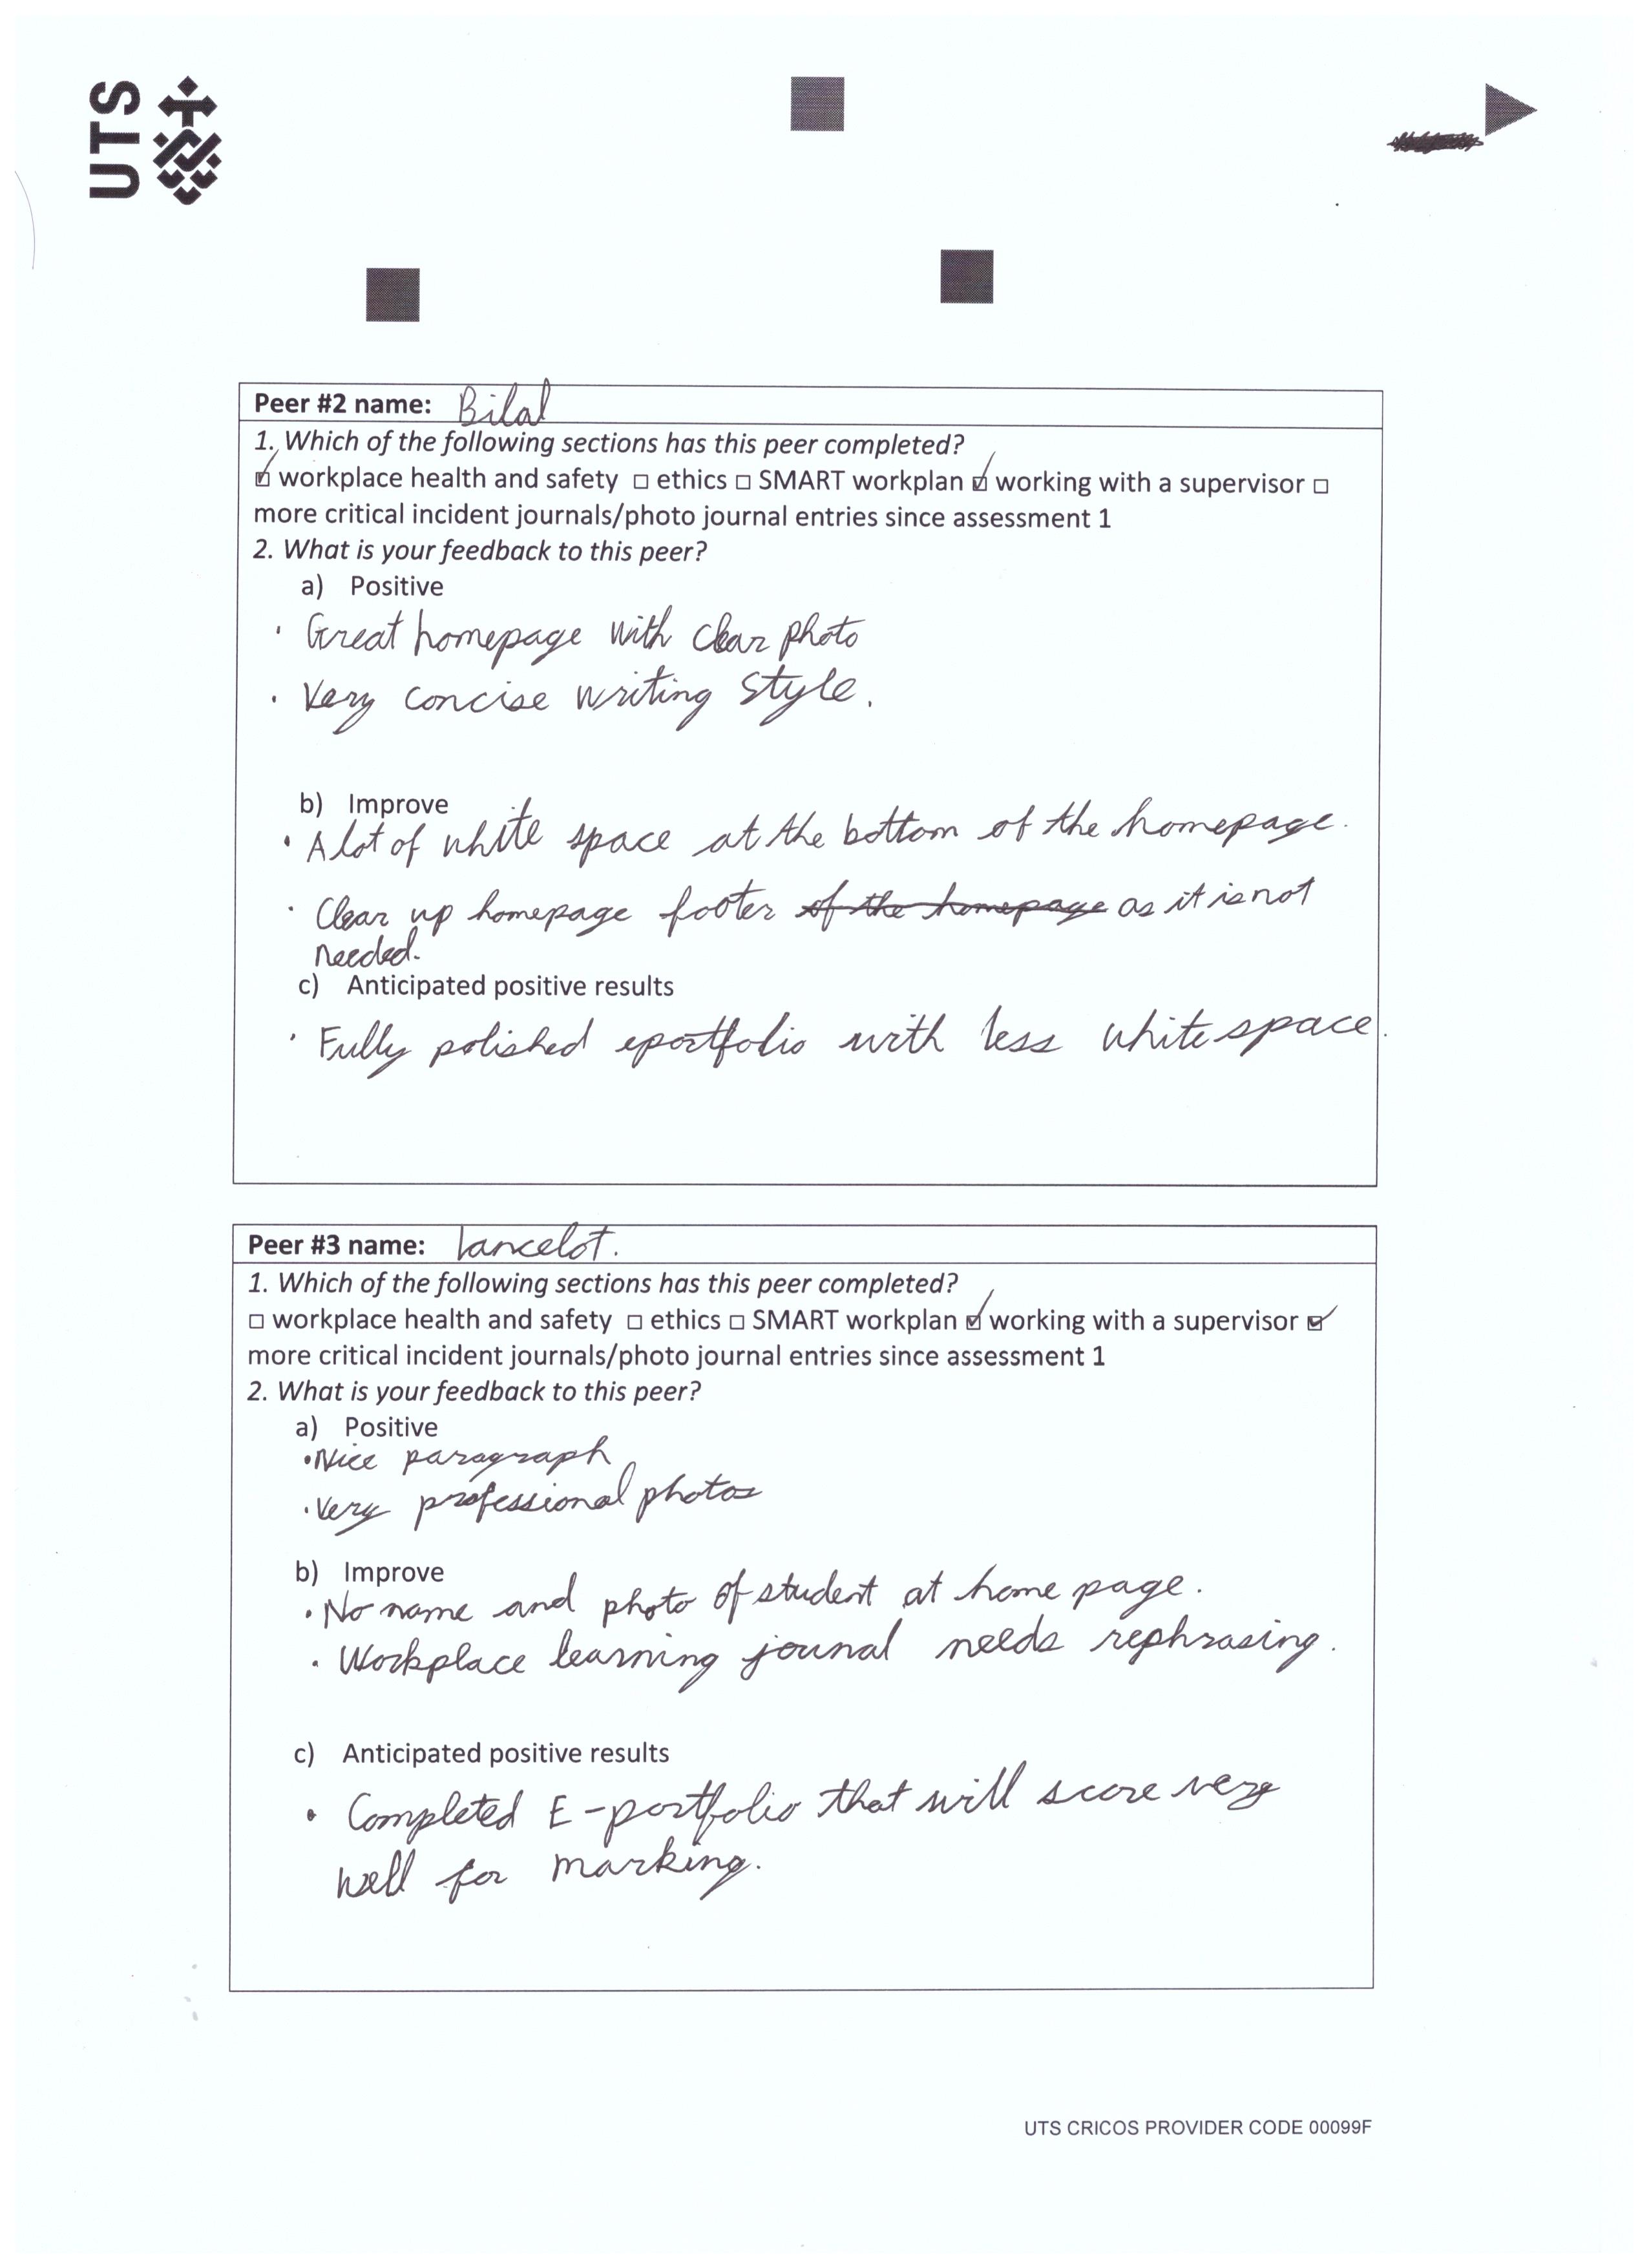 UTS
Peer #2 name: Bilal
1. Which of the following sections has this peer completed?
☑ workplace health and safety ☐ ethics ☐ SMART workplan ☑ working with a supervisor ☐
more critical incident journals/photo journal entries since assessment 1
2. What is your feedback to this peer?
a) Positive
· Great homepage with clear photo
· Very concise writing style.
b) Improve
· A lot of white space at the bottom of the homepage.
· Clear up homepage footer ~~of the homepage~~ as it is not
needed.
c) Anticipated positive results
· Fully polished eportfolio with less white space.
Peer #3 name: lancelot.
1. Which of the following sections has this peer completed?
☐ workplace health and safety ☐ ethics ☐ SMART workplan ☑ working with a supervisor ☑
more critical incident journals/photo journal entries since assessment 1
2. What is your feedback to this peer?
a) Positive
· Nice paragraph
· Very professional photos
b) Improve
· No name and photo of student at home page.
· Workplace learning jounal needs rephrasing.
c) Anticipated positive results
· Completed E-portfolio that will score very
well for marking.
UTS CRICOS PROVIDER CODE 00099F